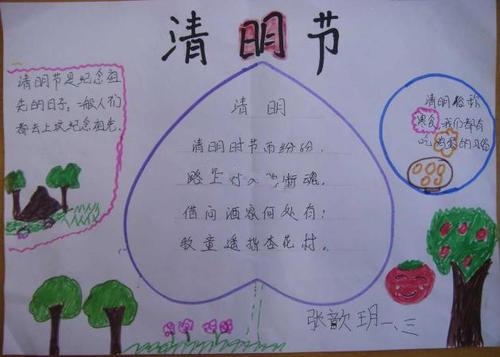 清明节
清明节是纪念祖
先的日子,一般人们
都去上坟纪念祖先.
清明
清明时节雨纷纷,
路上行人 断魂。
借问酒家何处有:
牧童遥指杏花村.
清明俗称
寒食,我们都有
吃鸡蛋的习俗
张歆玥 一、三